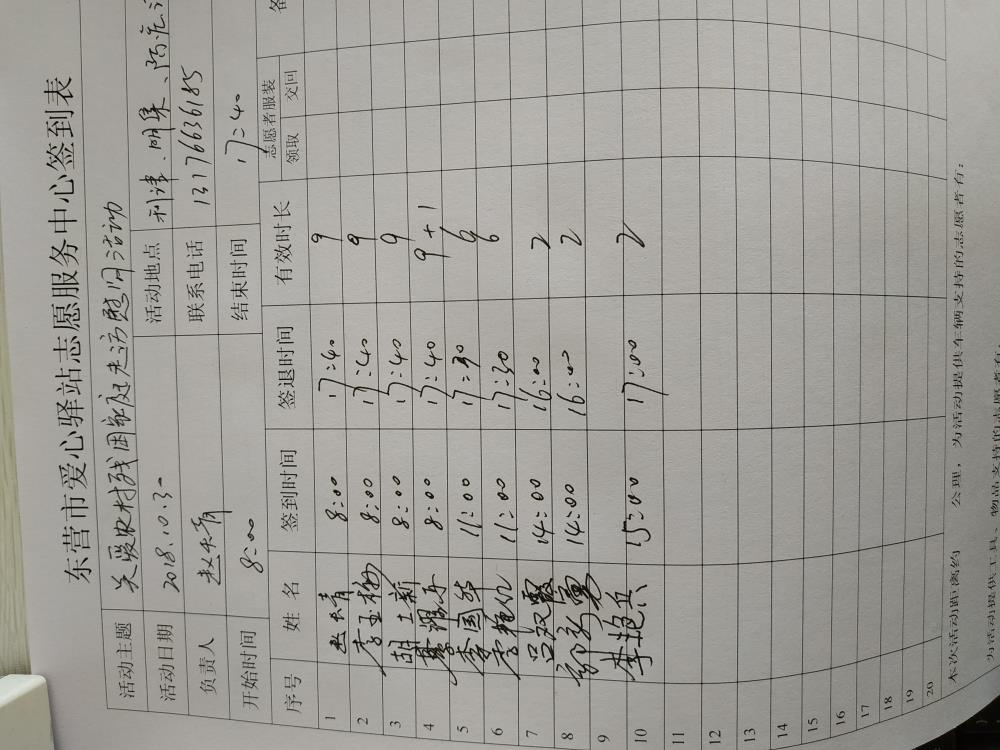 东营市爱心驿站志愿服务中心签到表
活动主题 关爱农村残困家庭走访慰问活动
活动日期 2018.10.30 活动地点 利津、明集、
负责人 赵长青 联系电话 13176636185
开始时间 8:00 结束时间 17:40
序号 姓名 签到时间 签退时间 有效时长 志愿者服装 领取 交回 备
1 赵长青 8:00 17:40 9
2 李玉梅 8:00 17:40 9
3 胡士新 8:00 17:40 9
4 8:00 17:40 9+1
5 李国华 11:00 17:30 6
6 李艳红 11:00 17:30 6
7 吕淑霞 14:00 16:00 2
8 14:00 16:00 2
9
10 李抱兵 15:00 17:00 2
11
12
13
14
15
16
17
18
19
20
本次活动距离约 公理，为活动提供车辆支持的志愿者有：
为活动提供工具、物品支持的志愿者有